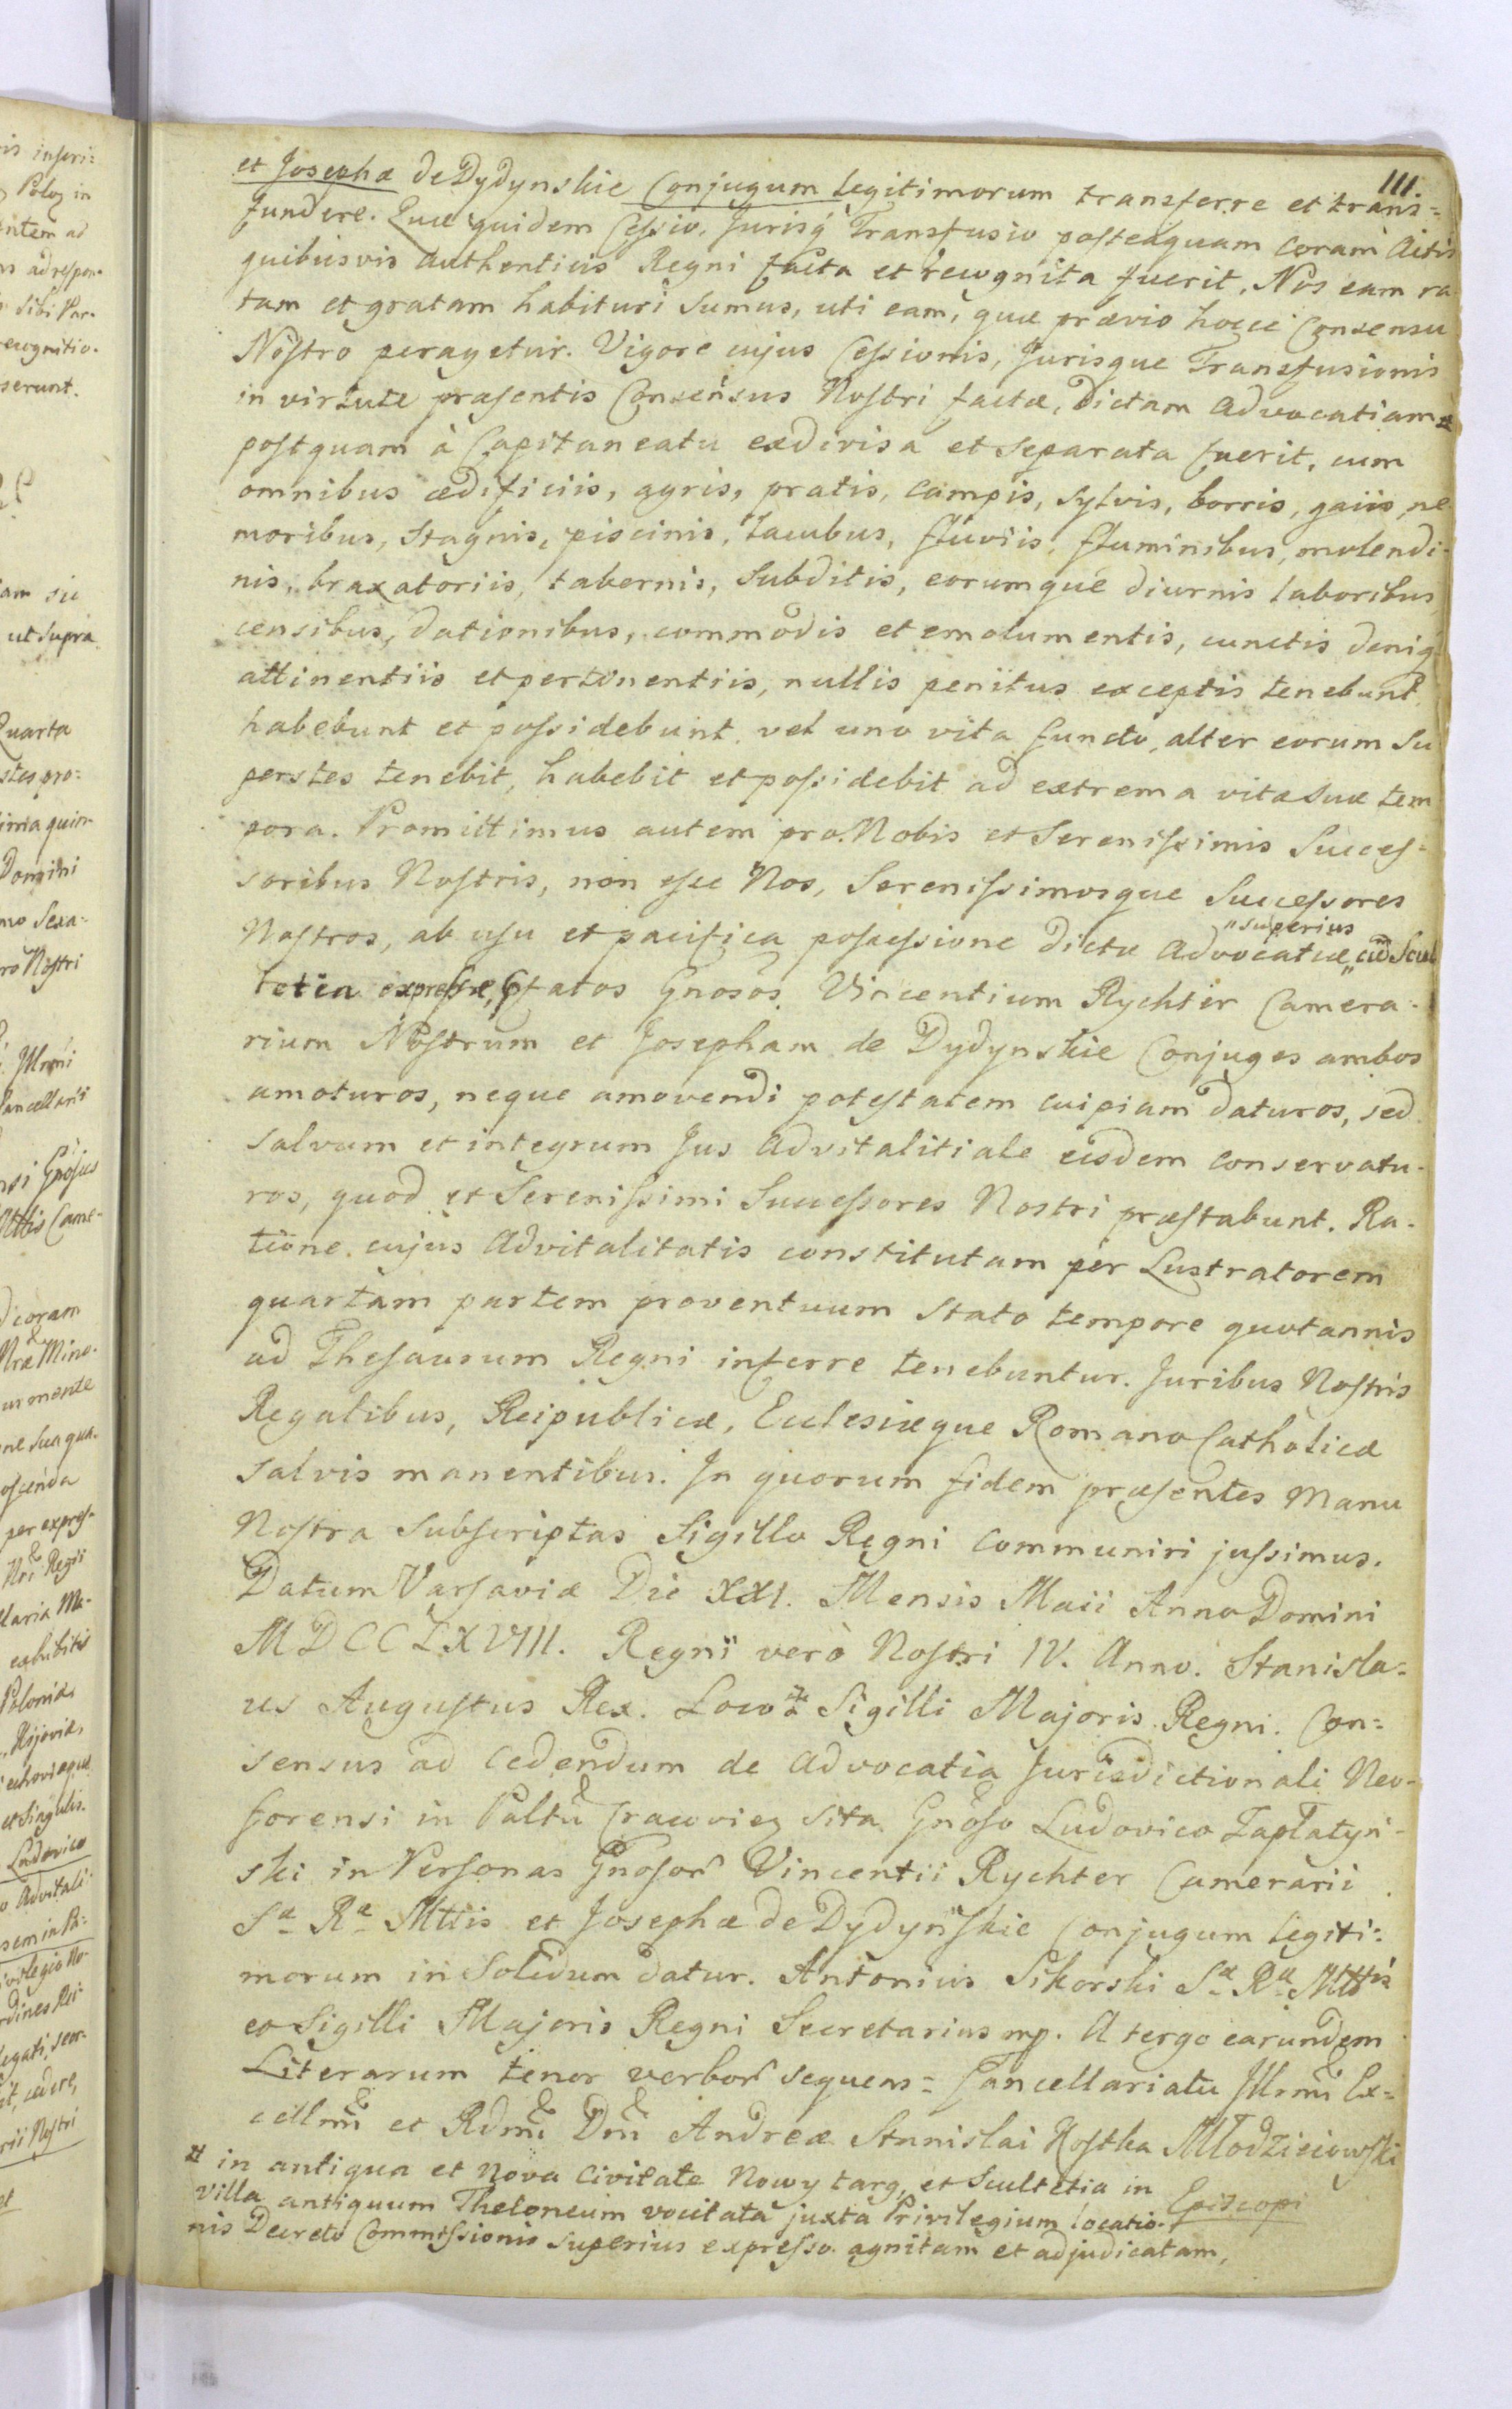 111.
et Josephæ de Dydynskie Conjugum legitimorum transferre et trans=
fundere. Quæ quidem Cessio, Jurisq́ Transfusio posteaquam coram Actis
quibusvis authenticis Regni facta et recognita fuerit, Nos eam ra
tam et gratam habituri sumus, uti eam, quæ prævio hocce Consensu
Nostro peragetur. Vigore cujus Cessionis, Jurisque Transfusionis
in virtute præsentis Consensus Nostri factæ, dictam advocatiam #
postquam à Capitaneatu exdivisa et separata fuerit, cum
omnibus ædificiis, agris, pratis, campis, sylvis, borris, gaiis, ne
moribus, stagnis, piscinis, lacubus, fluviis, fluminibus, molendi-
nis, braxatoriis, tabernis, subditis, eorumque diurnis laboribus,
censibus, dationibus, commodis et emolumentis, cunctis deniq́
attinentiis et pertinentiis, nullis penitus exceptis tenebunt,
habebunt et possidebunt, vel uno vita functo, alter eorum su
perstes tenebit, habebit et possidebit ad extrema vitæ suæ tem
pora. Promittimus autem pro Nobis et Serenissimis Succes-
soribus Nostris, non esse Nos, Serenissimosque Successores
Nostros, ab usu et pacifica possessione dictæ advocatiæ „ cum Scul
„superius
tetia expressæ, Pfatos Gnosos Vincentium Rychter Camera-
rium Nostrum et Josepham de Dydynskie Conjuges ambos
amoturos, neque amovendi potestatem cuipiam daturos, sed
salvum et integrum Jus advitalitiale eisdem conservatu-
ros, quod et Serenissimi Successores Nostri præstabunt. Ra-
tione cujus advitalitatis constitutam per Lustratorem
quartam partem proventuum stato tempore quotannis
ad Thesaurum Regni inferre tenebuntur. Juribus Nostris
Regalibus, Reipublicæ, Ecclesiæque Romano Catholicæ
salvis manentibus. In quorum fidem præsentes Manu
Nostra subscriptas Sigillo Regni communiri jussimus.
Datum Varsaviæ Die XXI. Mensis Maii Anno Domini
MDCCLXVIII. Regni verò Nostri IV. Anno. Stanisla=
us Augustus Rex. Sigilli Majoris Regni. Con=
sensus ad cedendum de advocatia Jurisdictionali Neo-
forensi in Paltu Cracovien sita Gnoso Ludovico Zapłatyń-
ski in Personas Gnosor Vincentii Rychter Camerarii
Sæ Ræ Mttis et Josephæ de Dydyńskie Conjugum legiti-
morum in Solidum datur. Antonius Sikorski Sæ Ræ Mttis
et Sigilli Majoris Regni Secretarius mp. A tergo earundem
Literarum tenor verbor sequens= Cancellariatu Illrmi Ex=
cellmi et Rdmi Dni Andreæ Stanislai Kostka Młodzieiowski
# in antiqua et nova Civitate Nowy targ, et Scultetia in
Episcopi
villa antiquum Theloneum vocitata juxta Privilegium locatio-
nis Decreto Commissionis superius expresso agnitam et adjudicatam,